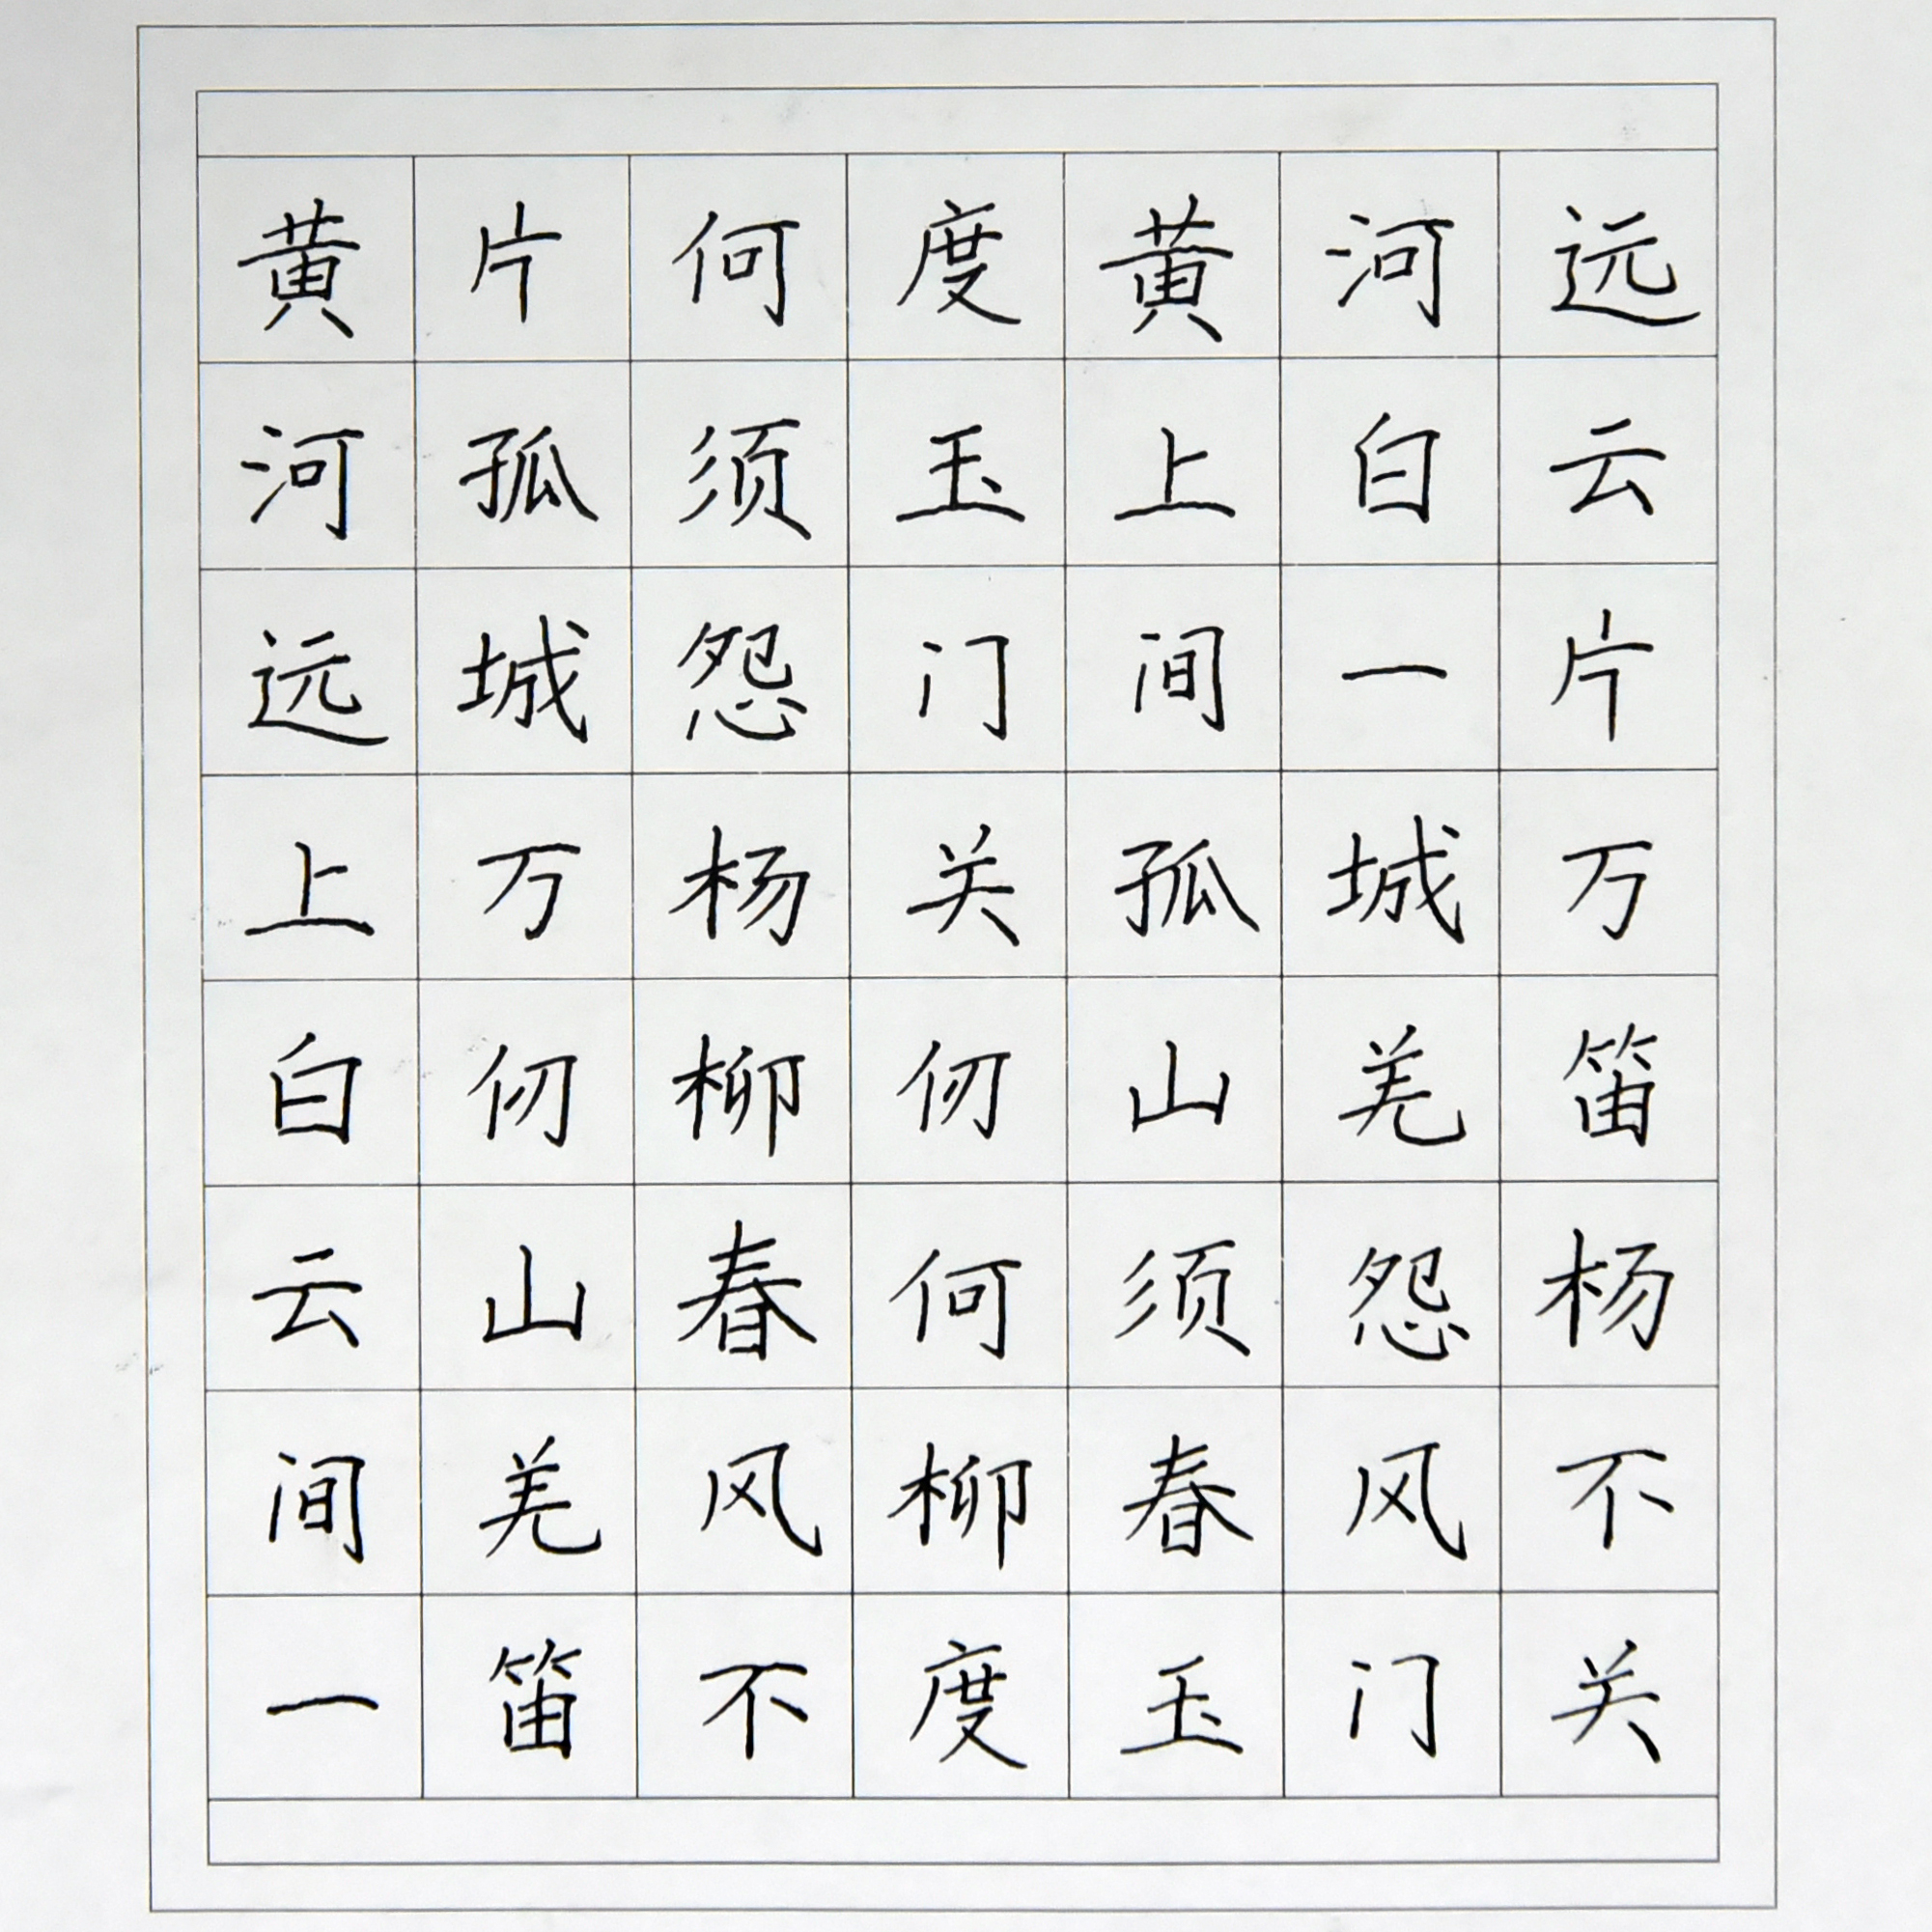 黄河远上白云间一
片孤城万仞山羌笛
何须怨杨柳春风不
度玉门关
黄河远
上白云
间一片
孤城万
仞山羌笛
何须怨杨
柳春风不
度玉门关